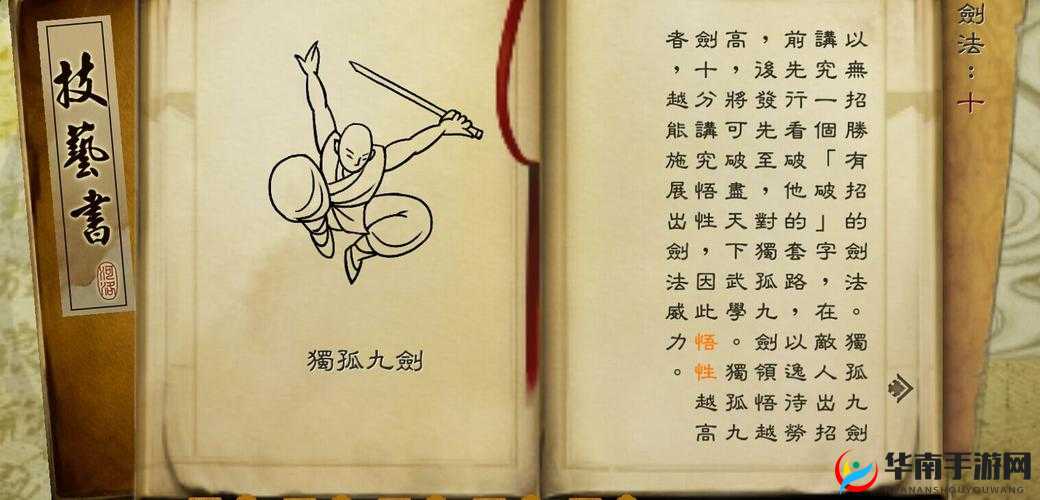 技藝書
河洛
獨孤九劍
劍法：十
以無招勝有招的劍法。獨孤九劍
講究一個「破」字，在敵人出招
前先行看破他的套路，以逸待勞
，後發先至，對獨孤九劍領悟越
高，將可破盡天下武學。獨孤九
劍十分講究悟性，因此悟性越高
者，越能施展出劍法威力。
华南手游网
HUANANSHOUYOUWANG